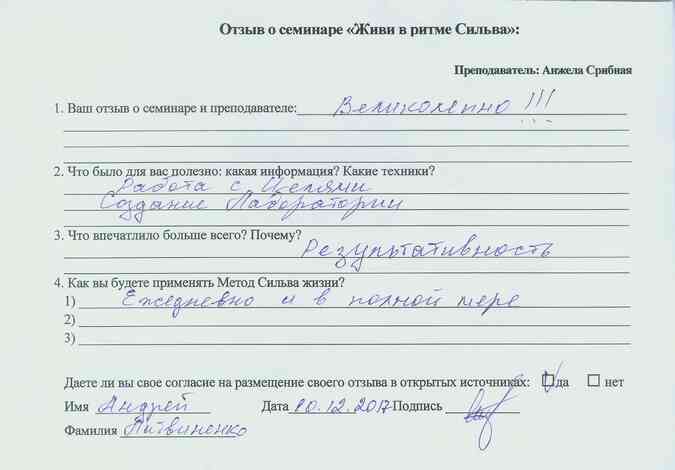 Отзыв о семинаре «Живи в ритме Сильва»:
Преподаватель: Анжела Срибная
1. Ваш отзыв о семинаре и преподавателе: Великолепно !!!
2. Что было для вас полезно: какая информация? Какие техники?
Работа с Целями
Создание Лаборатории
3. Что впечатлило больше всего? Почему? Результативность
4. Как вы будете применять Метод Сильва жизни?
1) Ежедневно и в полной мере
2)
3)
Даете ли вы свое согласие на размещение своего отзыва в открытых источниках: да нет
Имя Андрей Дата 10.12.2017 Подпись
Фамилия Литвиненко